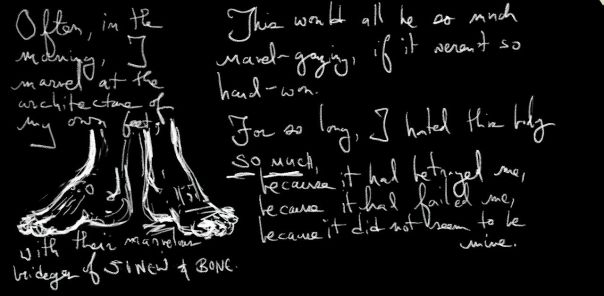 Often, in the
morning, I
marvel at the
architecture of
my own feet,
with their marvelous
bridges of SINEW & BONE.
This would all be so much
navel-gazing, if it weren't so
hard-won.
For so long, I hated this body
SO MUCH,
because it had betrayed me,
because it had failed me,
because it did not seem to be
mine.